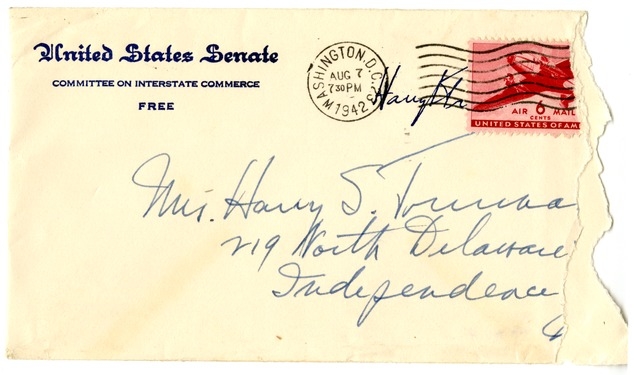 United States Senate
COMMITTEE ON INTERSTATE COMMERCE
FREE
WASHINGTON, D.C.
AUG 7
7 30 PM
1942
AIR 6 MAIL
CENTS
UNITED STATES OF AM
Mrs. Harry S. Truma
219 North Delaware
Independence